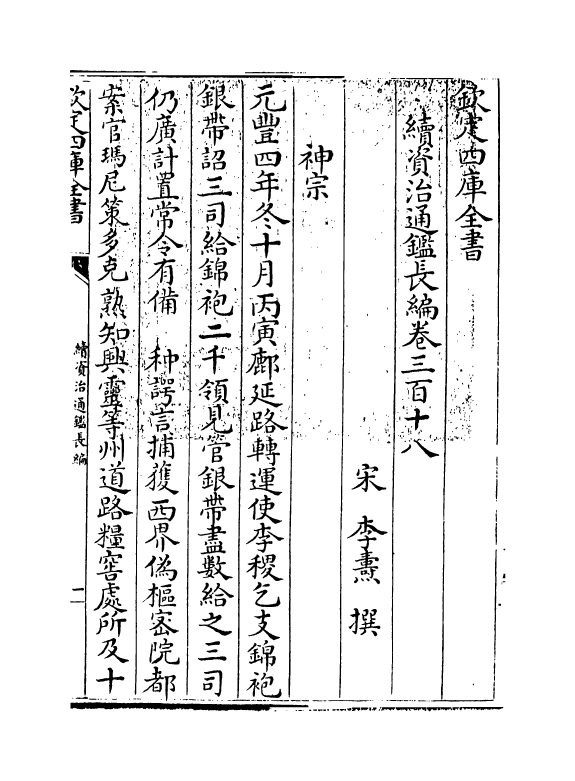 欽定四庫全書
續資治通鑑長編卷三百十八
宋 李燾 撰
神宗
元豐四年冬十月丙寅鄜延路轉運使李稷乞支錦袍
銀帶詔三司給錦袍二千領見管銀帶盡數給之三司
仍廣計置常令有備 种諤言捕獲西界偽樞密院都
案官瑪尼策多克熟知興靈等州道路糧窖處所及十
欽定四庫全書
續資治通鑑長編